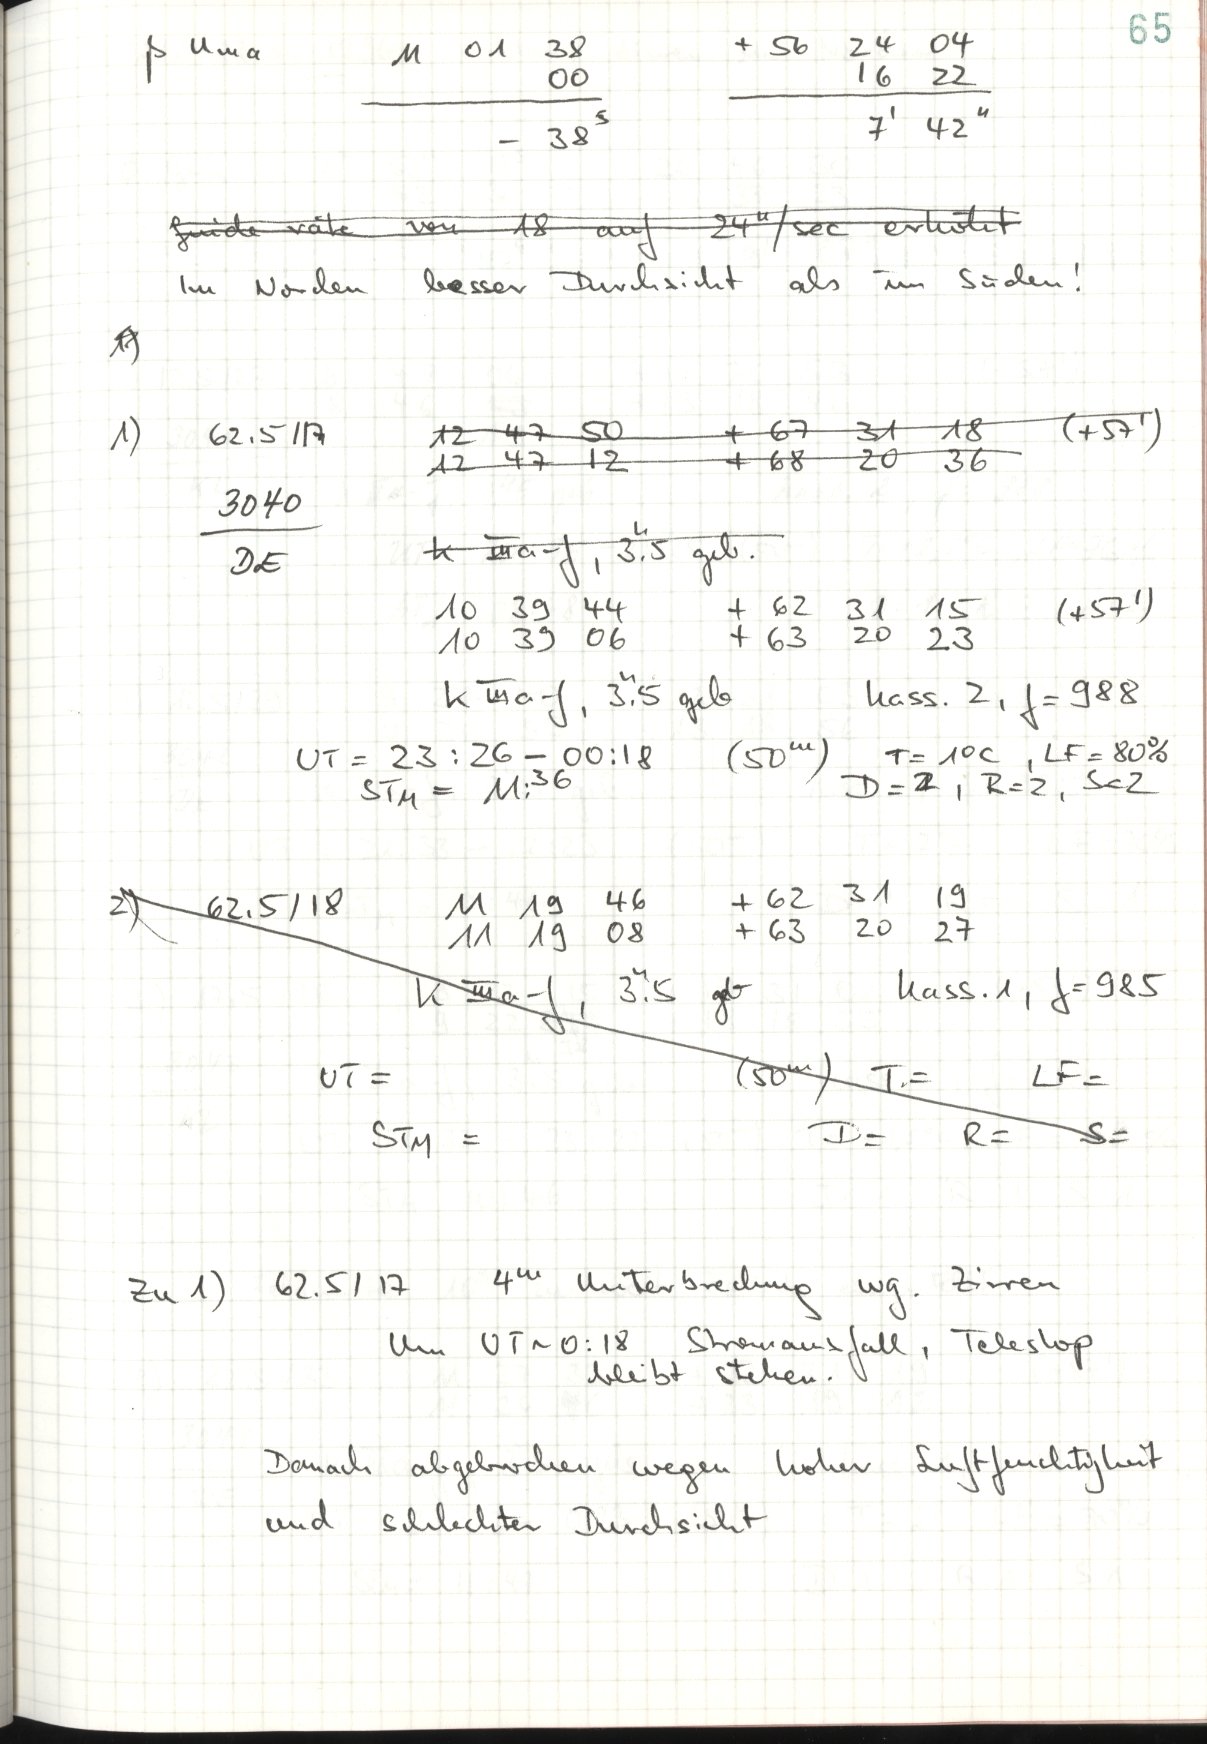 65
β Uma 11 01 38 + 56 24 04
00 16 22
- 38s 7' 42"
guide rate von 18 auf 24"/sec erhöht
Im Norden besser Durchsicht als im Süden!
1)
1) 62.5/17 12 47 50 + 67 31 18 (+57')
12 47 12 + 68 20 36
3040
DE
k IIIa-f, 3".5 geb.
10 39 44 + 62 31 15 (+57')
10 39 06 + 63 20 23
k IIIa-f, 3".5 geb Kass. 2, f=988
UT = 23:26 - 00:18 (50m) T=1°C, LF=80%
STM = 11:36 D=2, R=2, S=2
2) 62.5/18 11 19 46 + 62 31 19
11 19 08 + 63 20 27
k IIIa-f, 3".5 geb Kass. 1, f=985
UT = (50m) T.= LF=
STM = D= R= S=
Zu 1) 62.5/17 4m Unterbrechung wg. Zirren
Um UT~0:18 Stromausfall, Teleskop
bleibt stehen.
Danach abgebrochen wegen hoher Luftfeuchtigkeit
und schlechter Durchsicht